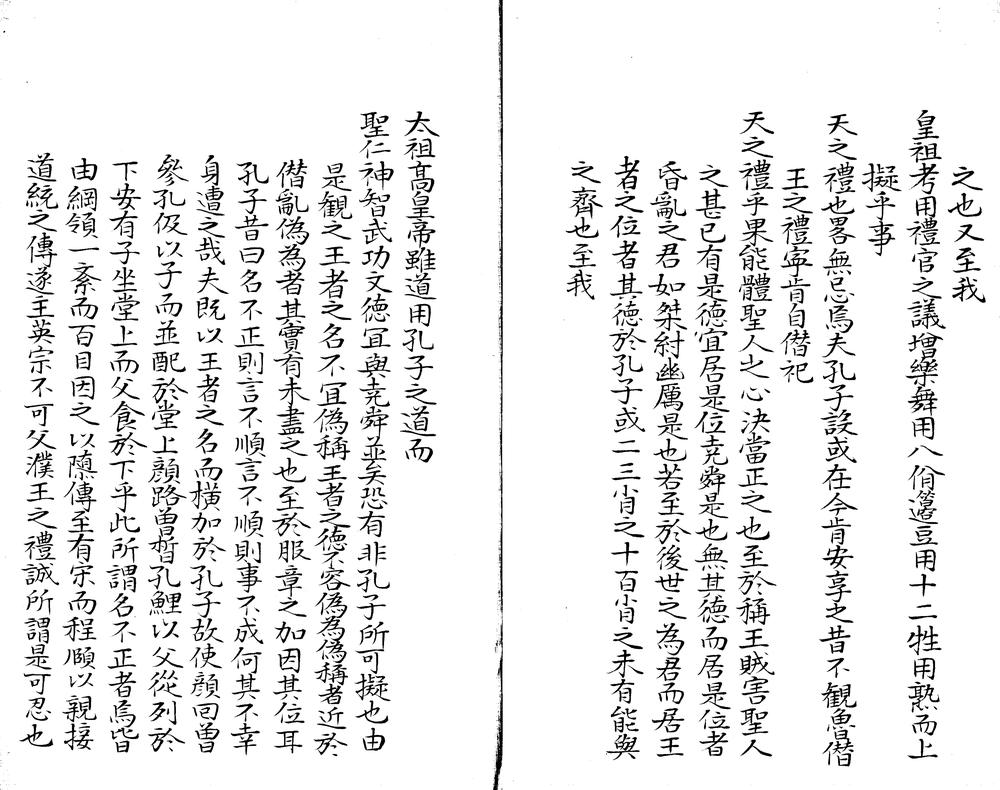 之也又至我
皇祖考用禮官之議增樂舞用八佾籩豆用十二牲用熟而上
擬乎事
天之禮也畧無忌焉夫孔子設或在今肯安享之昔不觀魯僭
王之禮寧肯自僭祀
天之禮乎果能體聖人之心決當正之也至於稱王賊害聖人
之甚已有是德宜居是位堯舜是也無其德而居是位者
昏亂之君如桀紂幽厲是也若至於後世之為君而居王
者之位者其德於孔子或二三肖之十百肖之未有能與
之齊也至我
太祖高皇帝雖道用孔子之道而
聖仁神智武功文德冝與堯舜並矣恐有非孔子所可擬也由
是觀之王者之名不冝偽稱王者之德不容偽為偽稱者近於
僭亂偽為者其實有未盡之也至於服章之加因其位耳
孔子昔曰名不正則言不順言不順則事不成何其不幸
身遭之哉夫既以王者之名而橫加於孔子故使顏回曾
參孔伋以子而並配於堂上顏路曾晳孔鯉以父從列於
下安有子坐堂上而父食於下乎此所謂名不正者焉皆
由綱領一紊而百目因之以隳傳至有宋而程頤以親接
道統之傳遂主英宗不可父濮王之禮誠所謂是可忍也